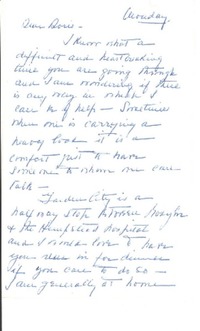 Monday.
Dear Doris -
I know what a
difficult and heartbreaking
time you are going through
and I am wondering if there
is any way in which I
can be of help - Sometimes
when one is carrying a
heavy load it is a
comfort just to have
someone to whom one can
talk -
is a
half way stop between
& the Hempstead Hospital
and I would love to have
you dine in for dinner
if you care to do so -
I am generally at home